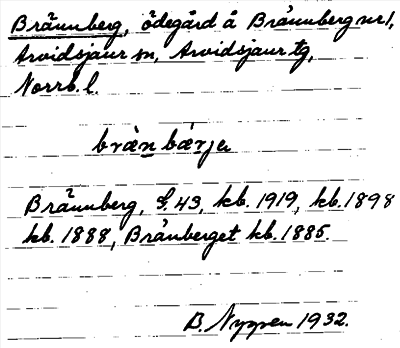 Brännberg, ödegård å Brännberg nr 1,
Arvidsjaur sn, Arvidsjaur tg,
Norrb. l.
brän bärje
Brännberg, f. 43, kb. 1919, kb. 1898
kb. 1888, Brånberget kb. 1885.
B. Nygren 1932.